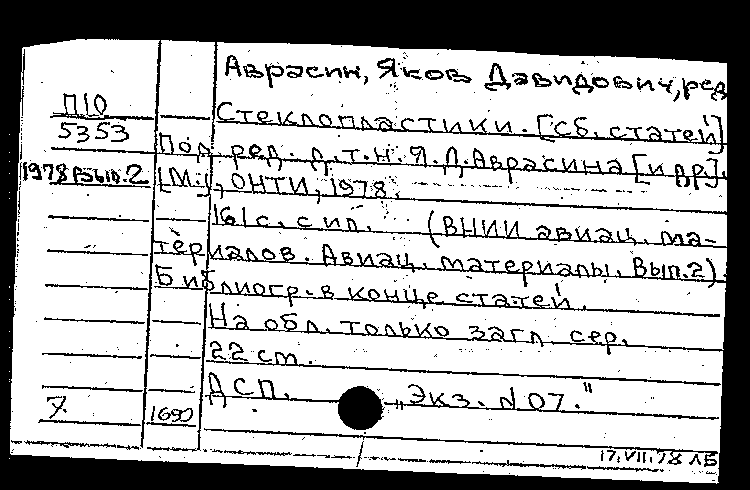 Аврасин, Яков Давидович, ред
П10
5353
1978 вып.2
Стеклопластики. [Сб. статей]
Под ред. д.т.н. Я.Д. Аврасина [и др].
[М.], ОНТИ, 1978.
161 с. с ил. (ВНИИ авиац. ма-
териалов. Авиац. материалы. Вып.2).
Библиогр. в конце статей.
На обл. только загл. сер.
22 см.
ДСП. „Экз. N 07."
7. 1690
17.VII.78 ЛБ